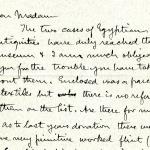 Dear Madam
The two cases of Egyptian
antiquities have duly reached th
museum & I am much oblige
you for the trouble you have tak
out them. Enclosed was a parce
textiles but there is no refe
them on the list. Are there for m
as to last years donation there we
very primitive worked flint (